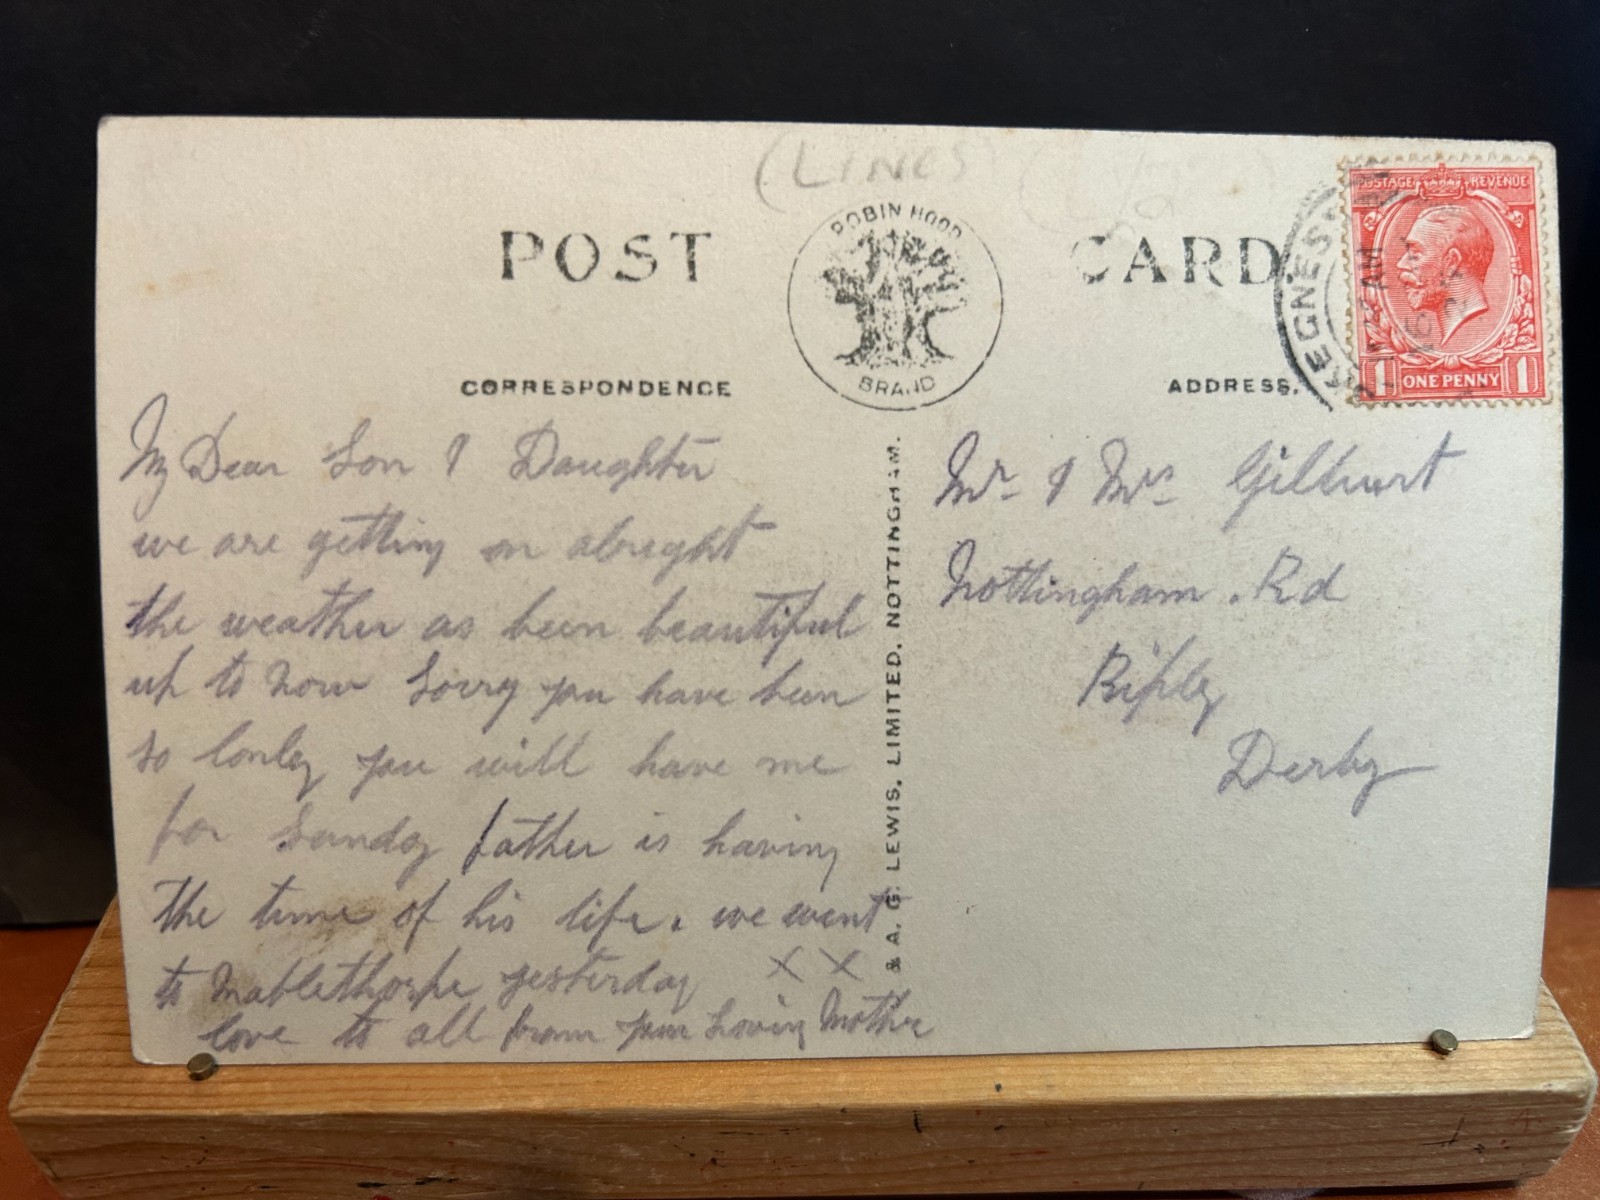 (LINCS)
POST CARD.
ROBIN HOOD
BRAND
CORRESPONDENCE
ADDRESS.
SKEGNESS
AM
POSTAGE REVENUE
1 ONE PENNY 1
My Dear Son & Daughter
we are getting on alright
the weather as been beautiful
up to now Sorry you have been
so lonley you will have me
for Sunday father is having
the time of his life. we went
to Mablethorpe yesterday x x
love to all from your Loving Mother
& A. G. LEWIS, LIMITED, NOTTINGHAM.
Mr & Mrs
Nottingham . Rd
Ripley
Derby